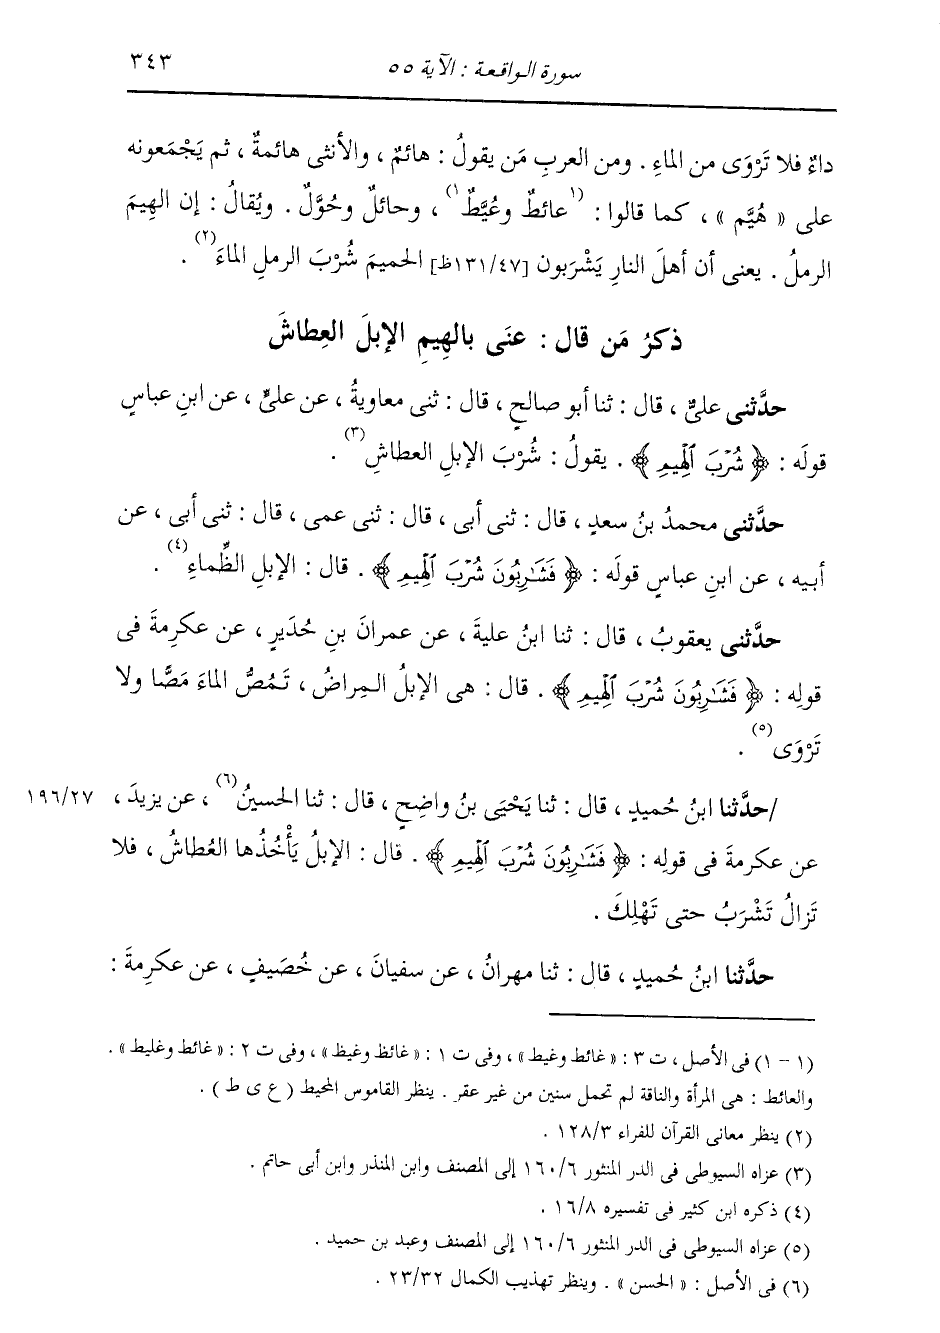 سورة الواقعة : الآية ٥٥ ٣٤٣
داءٌ فلا تَرْوَى من الماءِ . ومن العربِ مَن يقولُ : هائمٌ ، والأنثى هائمةٌ ، ثم يَجْمَعونه
على « هُيَّم » ، كما قالوا : (١عائطٌ وعُيَّطٌ١) ، وحائلٌ وحُوَّلٌ . ويُقالُ : إن الهِيمَ
الرملُ . يعنى أن أهلَ النارِ يَشْرَبون [١٣١/٤٧ظ] الحميمَ شُرْبَ الرملِ الماءَ(٢) .
ذكرُ مَن قال : عنَى بالهِيمِ الإبلَ العِطاشَ
حدَّثنى علىٌّ ، قال : ثنا أبو صالحٍ ، قال : ثنى معاويةُ ، عن علىٍّ ، عن ابنِ عباسٍ
قولَه : ﴿ شُرْبَ ٱلْهِيمِ ﴾ . يقولُ : شُرْبَ الإبلِ العطاشِ(٣) .
حدَّثنى محمدُ بنُ سعدٍ ، قال : ثنى أبى ، قال : ثنى عمى ، قال : ثنى أبى ، عن
أبيه ، عن ابنِ عباسٍ قولَه : ﴿ فَشَٰرِبُونَ شُرْبَ ٱلْهِيمِ ﴾ . قال : الإبلِ الظِّماءِ(٤) .
حدَّثنى يعقوبُ ، قال : ثنا ابنُ عليةَ ، عن عمرانَ بنِ حُدَيرٍ ، عن عكرمةَ فى
قولِه : ﴿ فَشَٰرِبُونَ شُرْبَ ٱلْهِيمِ ﴾ . قال : هى الإبلُ المِراضُ ، تَمُصُّ الماءَ مَصًّا ولا
تَرْوَى(٥) .
/حدَّثنا ابنُ حُميدٍ ، قال : ثنا يَحْيَى بنُ واضِحٍ ، قال : ثنا الحسينُ(٦) ، عن يزيدَ ، ١٩٦/٢٧
عن عكرمةَ فى قولِه : ﴿ فَشَٰرِبُونَ شُرْبَ ٱلْهِيمِ ﴾ . قال : الإبلُ يَأْخُذُها العُطاشُ ، فلا
تَزالُ تَشْرَبُ حتى تَهْلِكَ .
حدَّثنا ابنُ حُميدٍ ، قال : ثنا مهرانُ ، عن سفيانَ ، عن خُصَيفٍ ، عن عكرِمةَ :
(١ - ١) فى الأصل ، ت ٣ : « غائط وغيط » ، وفى ت ١ : « غائظ وغيظ » ، وفى ت ٢ : « غائط وغليط » .
والعائط : هى المرأة والناقة لم تحمل سنين من غير عقر . ينظر القاموس المحيط ( ع ى ط ) .
(٢) ينظر معانى القرآن للفراء ١٢٨/٣ .
(٣) عزاه السيوطى فى الدر المنثور ١٦٠/٦ إلى المصنف وابن المنذر وابن أبى حاتم .
(٤) ذكره ابن كثير فى تفسيره ١٦/٨ .
(٥) عزاه السيوطى فى الدر المنثور ١٦٠/٦ إلى المصنف وعبد بن حميد .
(٦) فى الأصل : « الحسن » . وينظر تهذيب الكمال ٢٣/٣٢ .